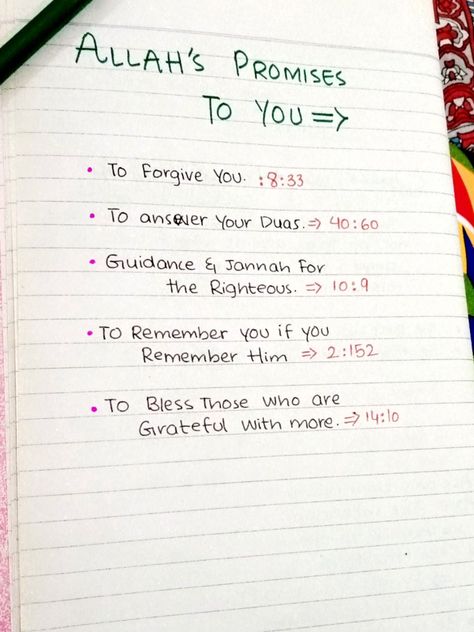 ALLAH'S PROMISES
TO YOU =>
• To Forgive You. :8:33
• To answer Your Duas.=> 40:60
• Guidance & Jannah For
the Righteous. => 10:9
• To Remember you if you
Remember Him => 2:152
• To Bless Those who are
Grateful with more.=> 14:10